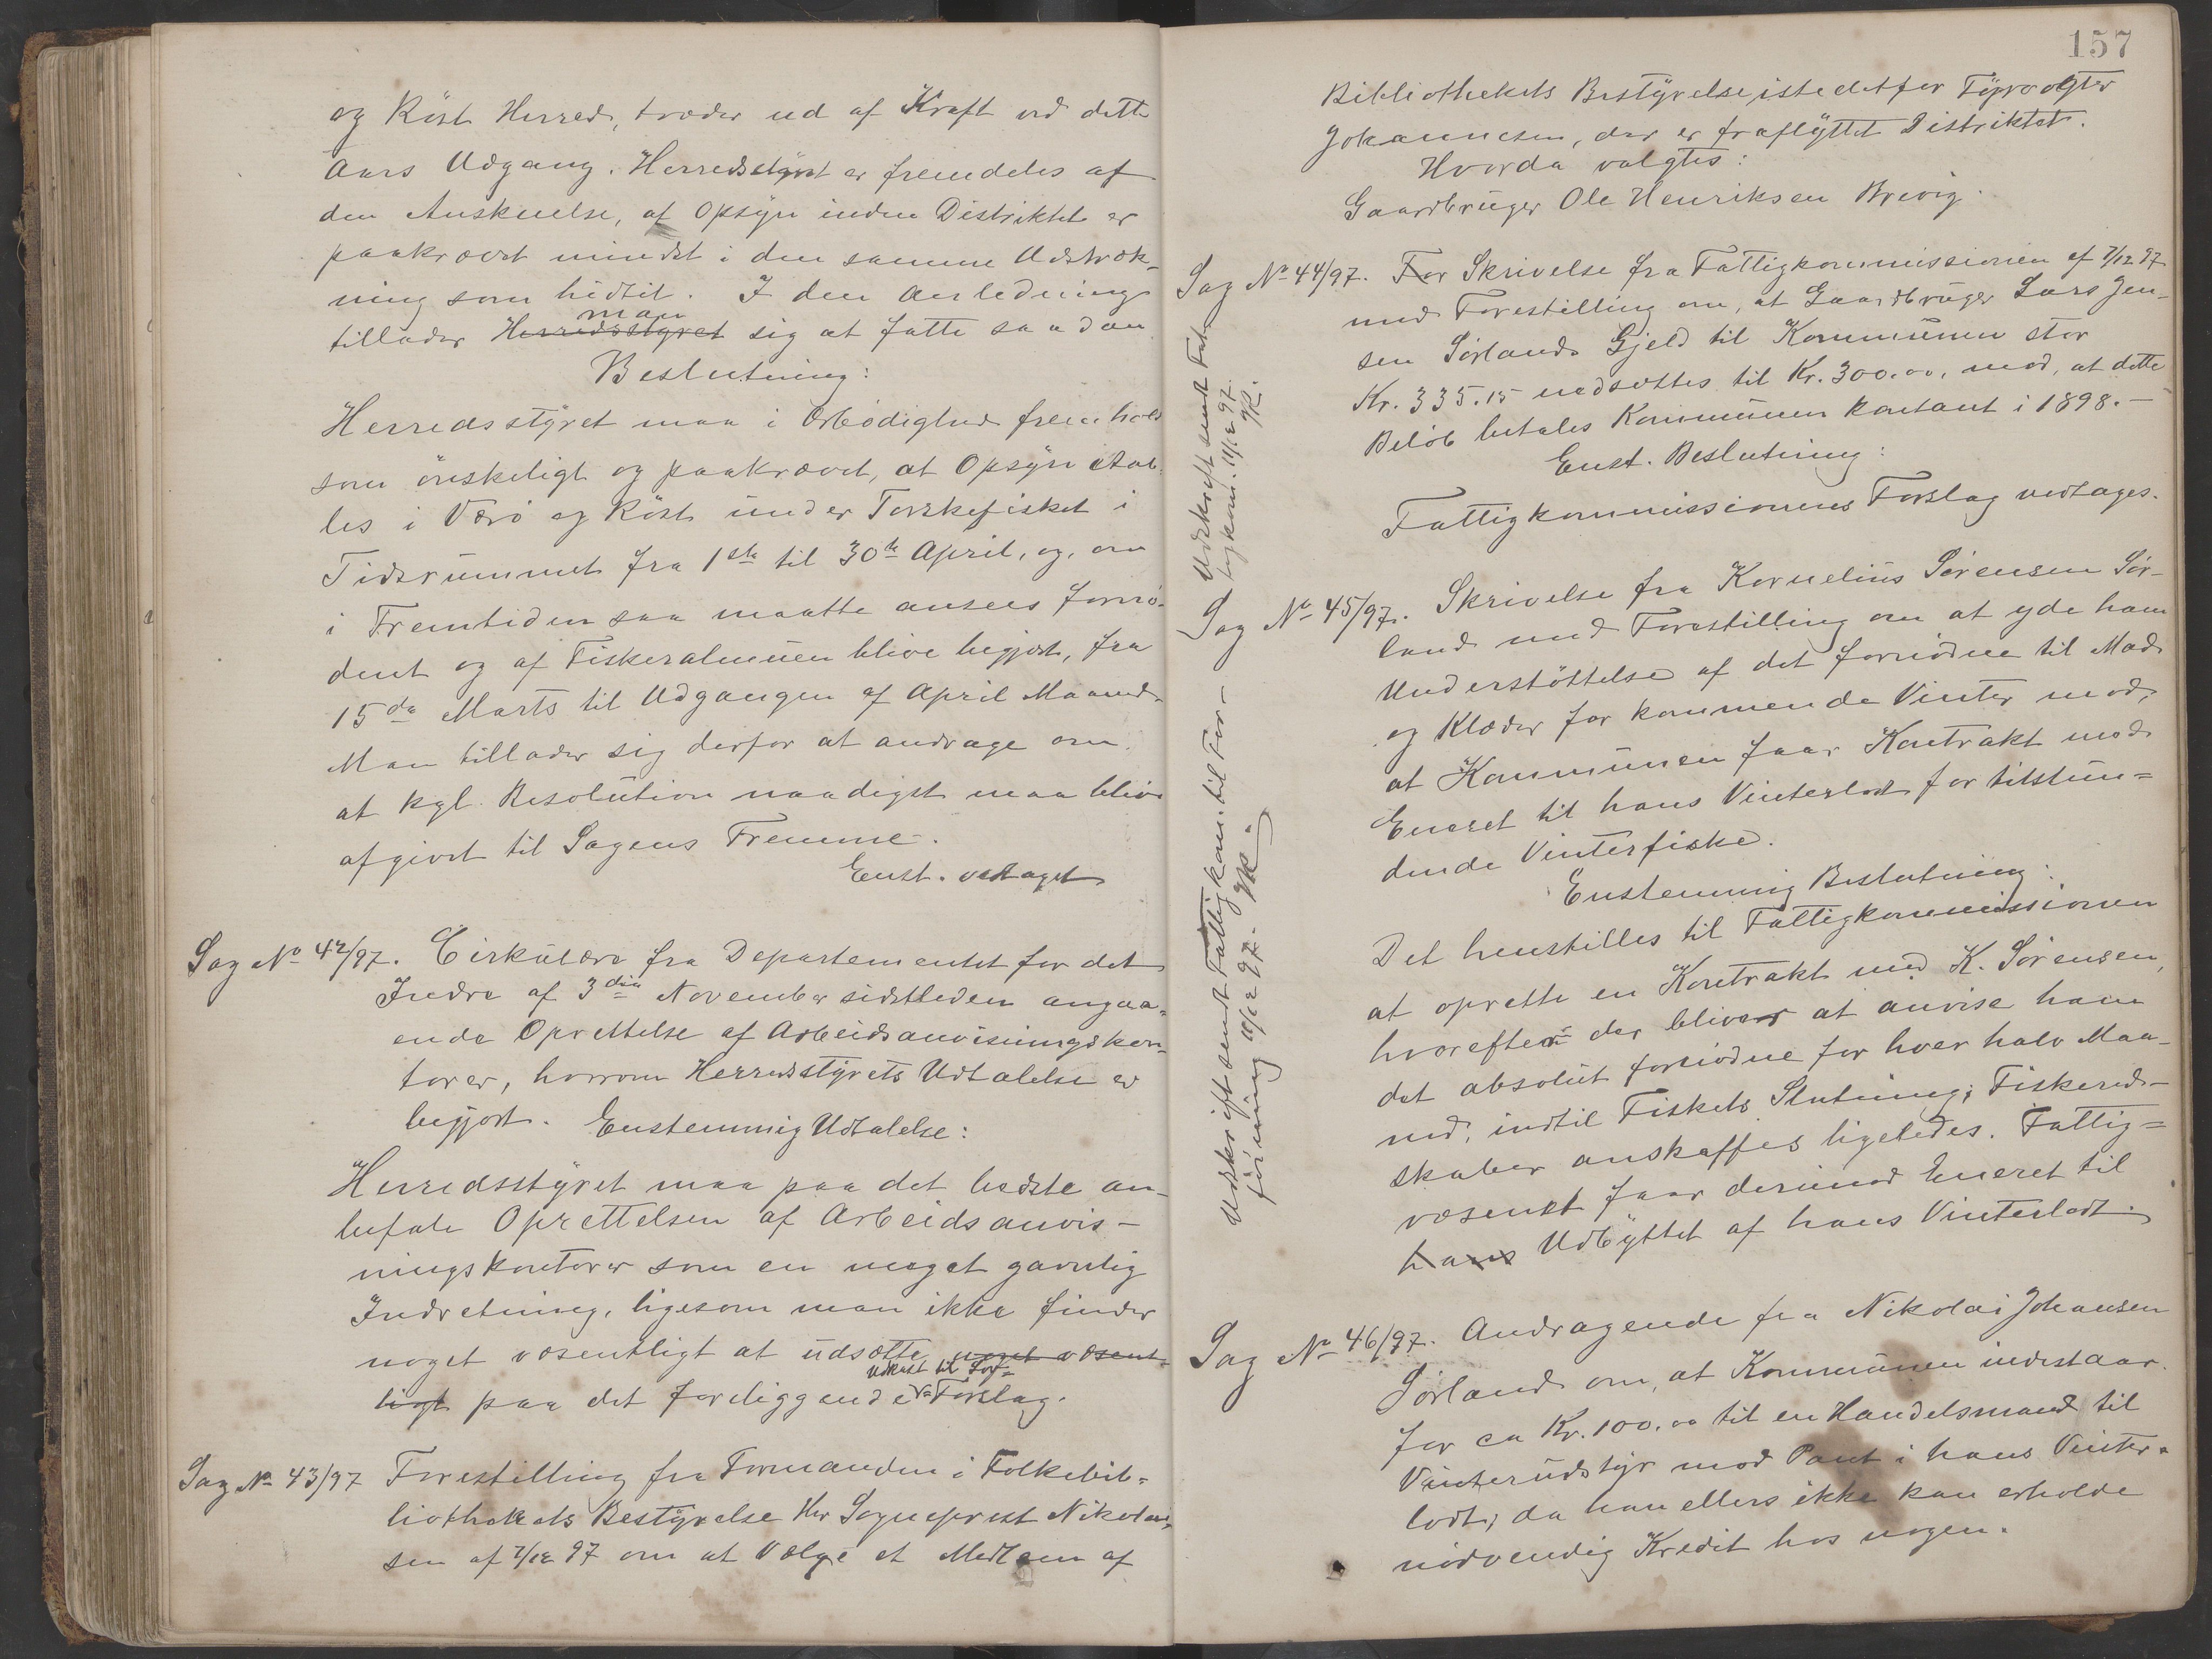 og Röst Herred, træder ud af Kraft ved dette
Aars Udgang. Herredsstyret er fremdeles af
den Anskuelse, at Opsyn inden Distriktet er
paakrævet mindst i den samme Udstræk-
ning som hidtil. I den Anledning
man
tillader Herredsstyret sig at fatte saadan
Beslutning:
Herredsstyret maa i Ærbödighed fremholde
som önskeligt og paakrævet, at Opsyn etab-
les i Værö og Röst under Torskefisket i
Tidsrummet fra 1ste til 30te April, og, om
i Fremtiden saa maatte ansees fornö-
dent og af Fiskeralmuen blive begjært, fra
15de Marts til Udgangen af April Maaned.
Man tillader sig derfor at andrage om
at kgl. Resolution naadigst maa blive
afgivet til Sagens Fremme.
Enst. vedtaget
Sag No 42/97. Cirkulære fra Departementet for det
Indre af 3die November sidstleden angaa-
ende Oprettelse af Arbeidsanvisningskon-
torer, hvorom Herredsstyrets Udtalelse er
begjært. Enstemmig Udtalelse:
Herredsstyret maa paa det bedste an-
befale Oprettelsen af Arbeidsanvis-
ningskontorer som en meget gavnlig
Indretning, ligesom man ikke finder
noget væsentligt at udsætte noget væsent-
Udkast til Lov=
ligt paa det foreliggende Forslag.
Sag No 43/97 Forestilling fra Formanden i Folkebib=
liothekets Bestyrelse Hr Sogneprest Nikolai-
sen af 7/12 97 om at Vælge et Medlem af
157
Bibliothekets Bestyrelse istedetfor Fyrvogter
Johannesen, der er fraflyttet Distriktet.
Hvorda valgtes:
Gaardbruger Ole Henriksen Brevig.
Sag No 44/97. For Skrivelse fra Fattigkommissionen af 7/12 97
med Forestilling om, at Gaardbruger Lars Jen-
sen Sörlands Gjeld til Kommunen stor
Kr. 335.15 nedsættes til Kr. 300.00, mod, at dette
Belöb betales Kommunen kontant i 1898.-
Enst. Beslutning:
Fattigkommissionens Forslag vedtages.
Udskrift sendt Fat-
tigkom. 11/12 97.
JK.
Sag No 45/97. Skrivelse fra Kornelius Sörensen Sör-
land med Forestilling om at yde ham
Understöttelse af det fornödne til Mad
og Klæder for kommende Vinter mod,
at Kommunen faar Kontrakt med
Eneret til hans Vinterlodt for tilstun=
dende Vinterfiske.
Enstemmig Beslutning:
Det henstilles til Fattigkommissionen
at oprette en Kontrakt med K. Sörensen,
hvorefter der bliver at anvise ham
det absolut fornödne for hver halv Maa-
ned, indtil Fiskets Slutning; Fiskered-
skaber anskaffes ligeledes. Fattig=
væsenet faar derimod Eneret til
hans Udbyttet af hans Vinterlodt.
Udskrift sendt Fattigkom. til For-
föining 11/12 97. JK.
Sag No 46/97. Andragende fra Nikolai Johansen
Sörland om, at Kommunen indestaar
for ca Kr. 100.00 til en Handelsmand til
Vinterudstyr mod Pant i hans Vinter=
lodt; da han ellers ikke kan erholde
nödvendig Kredit hos nogen.